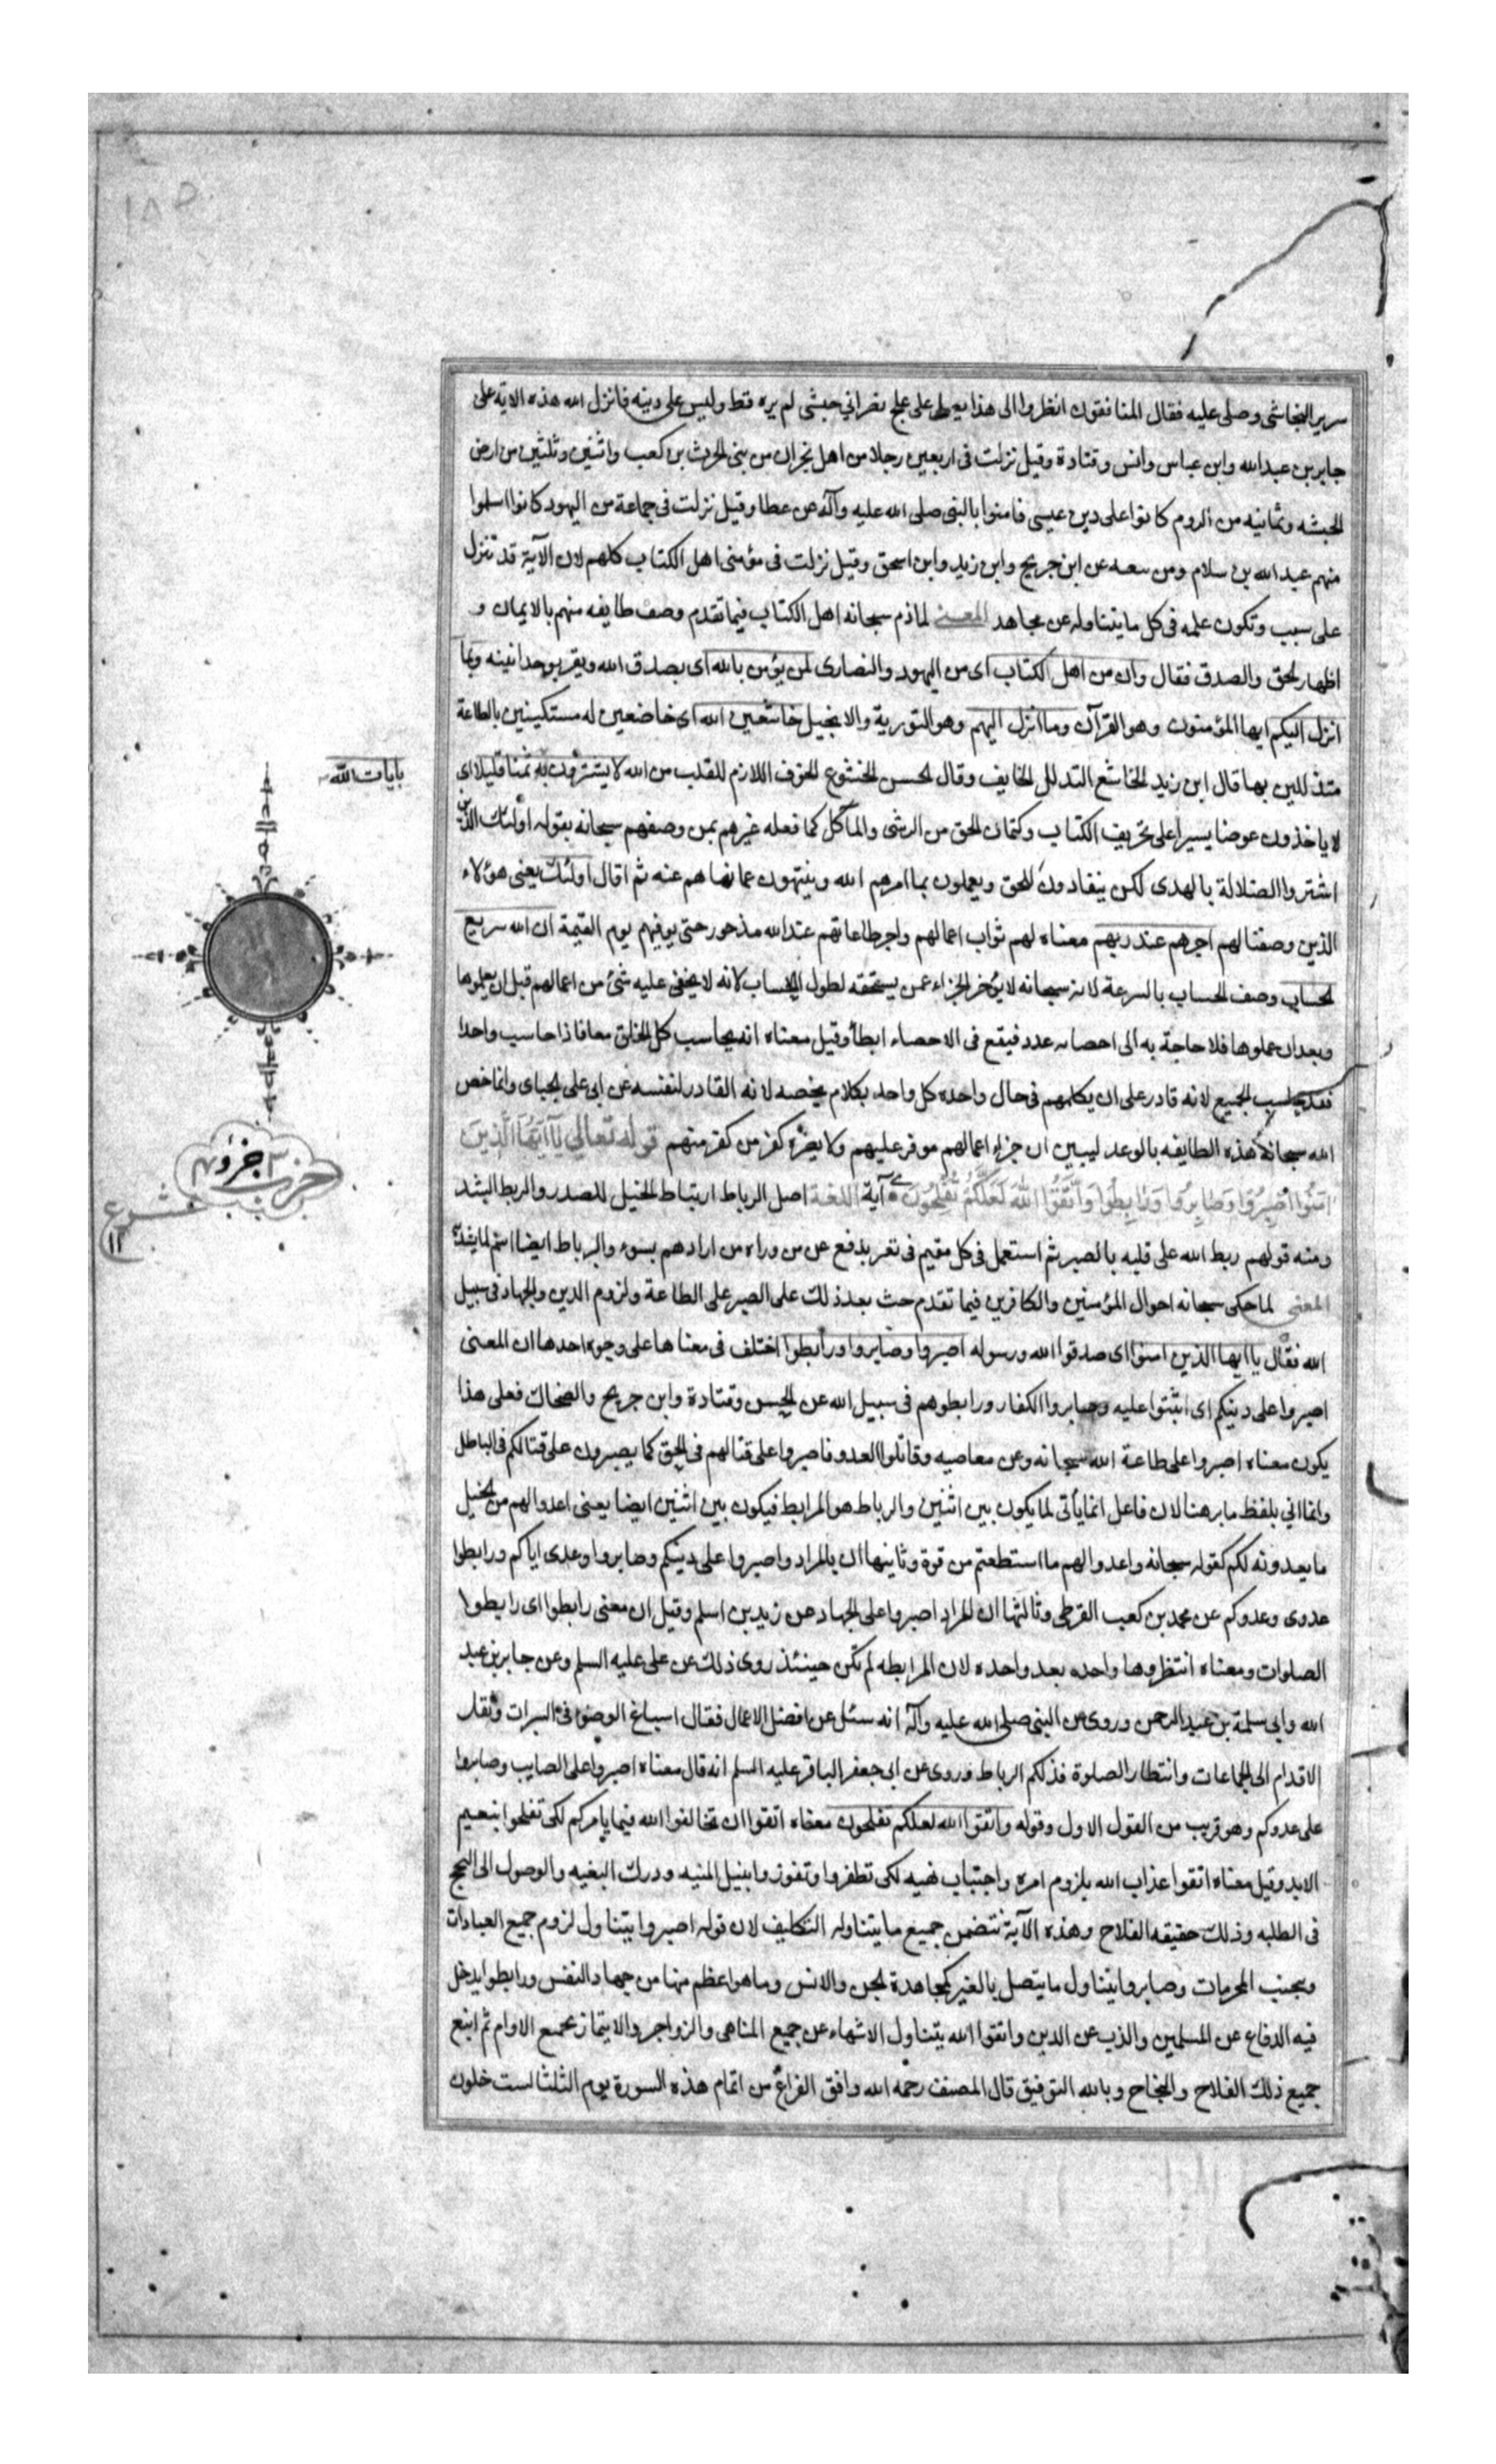 سرير النجاشى وصلى عليه فقال المنافقون انظروا الى هذا يصلى على علج نصرانى حبشى لم يره قط وليس على دينه فانزل الله هذه الاية على
جابر بن عبد الله وابن عباس وانس وقتادة وقيل نزلت فى اربعين رجلا من اهل نجران من بنى الحرث بن كعب واثنين وثلثين من ارض
الحبشه وثمانيه من الروم كانوا على دين عيسى فامنوا بالنبى صلى الله عليه وآله عن عطا وقيل نزلت فى جماعة من اليهود كانوا اسلموا
منهم عبد الله بن سلام ومن معه عن ابن جريج وابن زيد وابن اسحق وقيل نزلت فى مؤمنى اهل الكتاب كلهم لان الآية قد تنزل
على سبب وتكون علمه فى كل ما يتناوله عن مجاهد المعنى لما ذم سبحانه اهل الكتاب فيما تقدم وصف طايفه منهم بالايمان و
اظهار الحق والصدق فقال وان من اهل الكتاب اى من اليهود والنصارى لمن يؤمن بالله اى يصدق الله ويقر بوحدانيته وبما
انزل اليكم ايها المؤمنون وهو القرآن وما انزل اليهم وهو التورية والانجيل خاشعين الله اى خاضعين له مستكينين بالطاعة
متذللين بها قال ابن زيد الخاشع المتذلل الخايف وقال الحسن الخشوع الخوف اللازم للقلب من الله لا يشترون به ثمنا قليلا اى
بايات الله
لا ياخذون عوضا يسيرا على تحريف الكتاب وكتمان الحق من الرشى والمآكل كما فعله غيرهم بمن وصفهم سبحانه بقوله اولئك الذين
اشتروا الضلالة بالهدى لكن ينقادون للحق ويعملون بما امرهم الله وينتهون عما نهاهم عنه ثم اقال اولئك يعنى هؤلاء
الذين وصفنا لهم اجرهم عند ربهم معناه لهم ثواب اعمالهم واجر طاعاتهم عند الله مذخور حتى يوفيهم يوم القيمة ان الله سريع
الحساب وصف الحساب بالسرعة لانه سبحانه لا يؤخر الجزاء عمن يستحقه لطول الحساب لانه لا يخفى عليه شئ من اعمالهم قبل ان يعملوها
وبعد ان عملوها فلا حاجة به الى احصاء عدد فيقع فى الاحصاء ابطأ وقيل معناه انه يحاسب كل الخلق معا فاذا حاسب واحدا
فقد حاسب الجميع لانه قادر على ان يكلمهم فى حال واحده كل واحد بكلام يخصه لانه القادر لنفسه عن ابى على الجباى وانما خص
الله سبحانه هذه الطايفه بالوعد ليبين ان جزاء اعمالهم موفر عليهم ولا يضره كفر من كفر منهم قوله تعالى يا ايها الذين
امنوا اصبروا وصابروا ورابطوا واتقوا الله لعلكم تفلحون آية اللغة اصل الرباط ارتباط الخيل للصدر والربط الشد
حزب ٣ جزو ٤
ومنه قولهم ربط الله على قلبه بالصبر ثم استعمل فى كل مقيم فى ثغر يدفع عن من وراه من ارادهم بسوء والرباط ايضا اسم لما يشد به
المعنى لما حكى سبحانه احوال المؤمنين والكافرين فيما تقدم حث بعد ذلك على الصبر على الطاعة ولزوم الدين والجهاد فى سبيل
الله فقال يا ايها الذين امنوا اى صدقوا الله ورسوله اصبروا وصابروا ورابطوا اختلف فى معناها على وجوه احدها ان المعنى
اصبروا على دينكم اى اثبتوا عليه وصابروا الكفار ورابطوهم فى سبيل الله عن الحسن وقتادة وابن جريج والضحاك فعلى هذا
يكون معناه اصبروا على طاعة الله سبحانه وعن معاصيه وقاتلوا العدو فاصبروا على قتالهم فى الحق كما يصبرون على قتالكم فى الباطل
وانما اتى بلفظ صابر هنا لان فاعل انما يأتى لما يكون بين اثنين والرباط هو المرابط فيكون بين اثنين ايضا يعنى اعدوا لهم من الخيل
ما يعدونه لكم كقوله سبحانه واعدوا لهم ما استطعتم من قوة وثانيها ان بالمراد واصبروا على دينكم وصابروا وعدى اياكم ورابطوا
عدوى وعدوكم عن محمد بن كعب القرظى وثالثها ان المراد اصبروا على الجهاد عن زيد بن اسلم وقيل ان معنى رابطوا اى رابطوا
الصلوات ومعناه انتظروها واحده بعد واحده لان المرابطه لم تكن حينئذ روى ذلك عن على عليه السلم وعن جابر بن عبد
الله وابى سلمة بن عبد الرحمن وروى عن النبى صلى الله عليه وآله انه سئل عن افضل الاعمال فقال اسباغ الوضوء فى السبرات ونقل
الاقدام الى الجماعات وانتظار الصلوة فذلكم الرباط وروى عن ابى جعفر الباقر عليه السلم انه قال معناه اصبروا على المصايب وصابروا
على عدوكم وهو قريب من القول الاول وقوله واتقوا الله لعلكم تفلحون معناه اتقوا ان تخالفوا الله فيما يامركم لكى تفلحوا بنعيم
الابد وقيل معناه اتقوا عذاب الله بلزوم امره واجتناب نهيه لكى تظفروا وتفوزوا بنيل المنيه ودرك البغيه والوصول الى النجح
فى الطلبه وذلك حقيقه الفلاح وهذه الآية تتضمن جميع ما يتناوله التكليف لان قوله اصبروا يتناول لزوم جميع العبادات
وتجنب المحرمات وصابروا يتناول ما يتصل بالغير كمجاهدة الجن والانس وما هو اعظم منها من جهاد النفس ورابطوا يدخل
فيه الدفاع عن المسلمين والذب عن الدين واتقوا الله يتناول الانتهاء عن جميع المناهى والزواجر والايتمار بجميع الاوامر ثم اتبع
جميع ذلك الفلاح والنجاح وبالله التوفيق قال المصنف رحمه الله وافق الفراغ من اتمام هذه السورة يوم الثلثا لست خلون